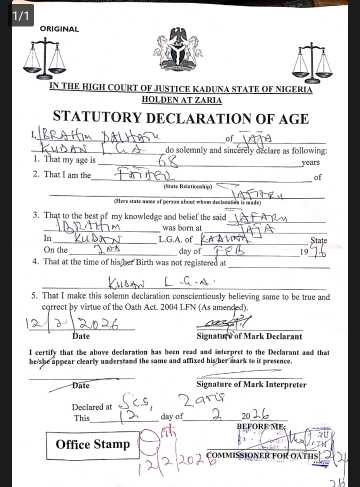 1/1
ORIGINAL
IN THE HIGH COURT OF JUSTICE KADUNA STATE OF NIGERIA
HOLDEN AT ZARIA
STATUTORY DECLARATION OF AGE
I, IBRAHIM DALHATU of JAJA
KUBAN L G A do solemnly and sincerely declare as following:
1. That my age is 68 years
2. That I am the FATHER of
(State Relationship)
JAFARU
(Here state name of person about whom declaration is made)
3. That to the best of my knowledge and belief the said JAFARU
IBRAHIM was born at JAJA
In KUBAN L.G.A. of KADUNA State
On the 2ND day of FEB 1976
4. That at the time of his/her Birth was not registered at
KUBAN L. G. A.
5. That I make this solemn declaration conscientiously believing same to be true and
correct by virtue of the Oath Act. 2004 LFN (As amended).
12/2/2026
Date Signature of Mark Declarant
I certify that the above declaration has been read and interpret to the Declarant and that
he/she appear clearly understand the same and affixed his/her mark to it presence.
Date Signature of Mark Interpreter
Declared at SCS, Zaria
This 12 day of 2 2026
BEFORE ME:
Office Stamp
12/2/2026
COMMISSIONER FOR OATHS